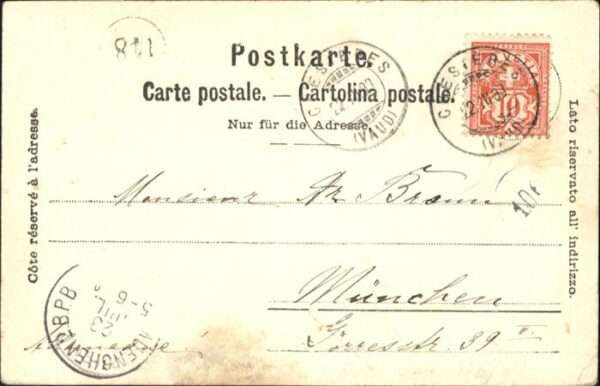 118
Postkarte.
Carte postale. — Cartolina postale.
Nur für die Adresse.
Côte réservé à l'adresse.
Lato riservato all' indirizzo.
(VAUD)
(VAUD)
10
106
Monsieur
München
Görresstr. 39
23
JUL.
5-6